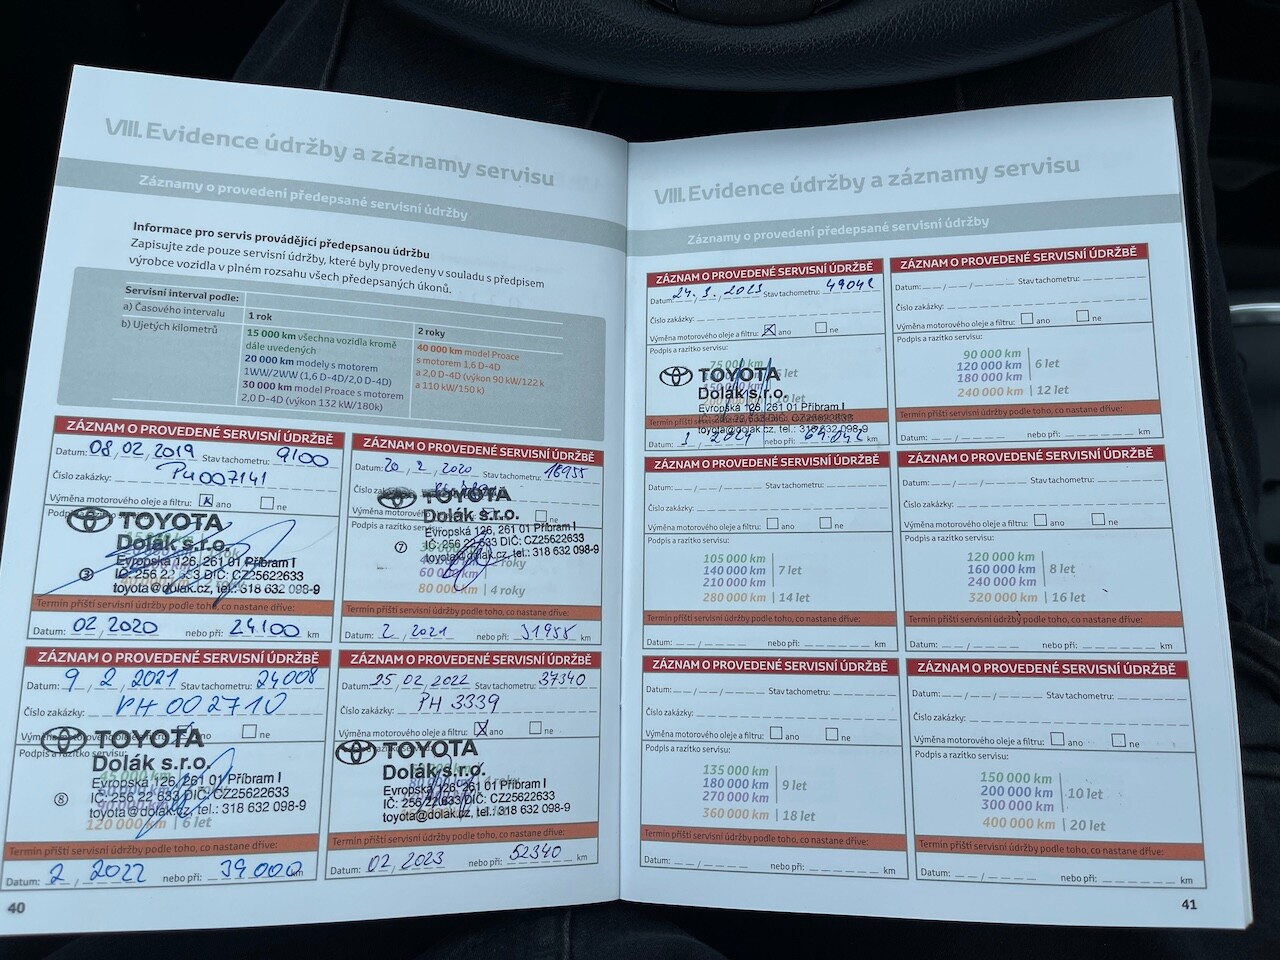 VIII. Evidence údržby a záznamy servisu
Záznamy o provedení předepsané servisní údržby
Informace pro servis provádějící předepsanou údržbu
Zapisujte zde pouze servisní údržby, které byly provedeny v souladu s předpisem
výrobce vozidla v plném rozsahu všech předepsaných úkonů.
Servisní interval podle:
a) Časového intervalu 1 rok 2 roky
b) Ujetých kilometrů
15 000 km všechna vozidla kromě
dále uvedených
20 000 km modely s motorem
1WW/2WW (1,6 D-4D/2,0 D-4D)
30 000 km model Proace s motorem
2,0 D-4D (výkon 132 kW/180k)
40 000 km model Proace
s motorem 1,6 D-4D
a 2,0 D-4D (výkon 90 kW/122 k
a 110 kW/150 k)
ZÁZNAM O PROVEDENÉ SERVISNÍ ÚDRŽBĚ
Datum: 08/02/2019 Stav tachometru: 9100
Číslo zakázky: PH007141
Výměna motorového oleje a filtru: ano ne
TOYOTA
Dolák s.r.o.
Evropská 126, 261 01 Příbram I
IČ: 256 22 633 DIČ: CZ25622633
toyota@dolak.cz, tel.: 318 632 098-9
3
Termín příští servisní údržby podle toho, co nastane dříve:
Datum: 02/2020 nebo při: 24100 km
ZÁZNAM O PROVEDENÉ SERVISNÍ ÚDRŽBĚ
Datum: 20/2/2020 Stav tachometru: 16955
Výměna motorového ne
Podpis a razítko servisu:
TOYOTA
Dolák s.r.o.
Evropská 126, 261 01 Příbram I
IČ: 256 22 633 DIČ: CZ25622633
toyota@dolak.cz, tel.: 318 632 098-9
7
60 000
80 000 km 4 roky
Termín příští servisní údržby podle toho, co nastane dříve:
Datum: 2/2021 nebo při: 31955 km
ZÁZNAM O PROVEDENÉ SERVISNÍ ÚDRŽBĚ
Datum: 9/2/2021 Stav tachometru: 24008
Číslo zakázky: PH 002710
ne
Podpis a razítko servisu:
TOYOTA
Dolák s.r.o.
Evropská 126, 261 01 Příbram I
IČ: 256 22 633 DIČ: CZ25622633
toyota@dolak.cz, tel.: 318 632 098-9
8
45 000 km
120 000 km 6 let
Termín příští servisní údržby podle toho, co nastane dříve:
Datum: 2/2022 nebo při: 39000 km
ZÁZNAM O PROVEDENÉ SERVISNÍ ÚDRŽBĚ
Datum: 25/02/2022 Stav tachometru: 37340
Číslo zakázky: PH 3339
Výměna motorového oleje a filtru: ano ne
TOYOTA
Dolák s.r.o.
Evropská 126, 261 01 Příbram I
IČ: 256 22 633 DIČ: CZ25622633
toyota@dolak.cz, tel.: 318 632 098-9
Termín příští servisní údržby podle toho, co nastane dříve:
Datum: 02/2023 nebo při: 52340 km
40
VIII. Evidence údržby a záznamy servisu
Záznamy o provedení předepsané servisní údržby
ZÁZNAM O PROVEDENÉ SERVISNÍ ÚDRŽBĚ
Datum: 24/3/2023 Stav tachometru: 49042
Číslo zakázky:
Výměna motorového oleje a filtru: ano ne
Podpis a razítko servisu:
75 000 km
TOYOTA
Dolák s.r.o.
Evropská 126, 261 01 Příbram I
IČ: 256 22 633 DIČ: CZ25622633
toyota@dolak.cz, tel.: 318 632 098-9
Datum: 2024 nebo při: 64042 km
ZÁZNAM O PROVEDENÉ SERVISNÍ ÚDRŽBĚ
Datum: / / Stav tachometru:
Číslo zakázky:
Výměna motorového oleje a filtru: ano ne
Podpis a razítko servisu:
90 000 km
120 000 km 6 let
180 000 km
240 000 km 12 let
Termín příští servisní údržby podle toho, co nastane dříve:
Datum: / nebo při: km
ZÁZNAM O PROVEDENÉ SERVISNÍ ÚDRŽBĚ
Datum: / / Stav tachometru:
Číslo zakázky:
Výměna motorového oleje a filtru: ano ne
Podpis a razítko servisu:
105 000 km
140 000 km 7 let
210 000 km
280 000 km 14 let
Termín příští servisní údržby podle toho, co nastane dříve:
Datum: / nebo při: km
ZÁZNAM O PROVEDENÉ SERVISNÍ ÚDRŽBĚ
Datum: / / Stav tachometru:
Číslo zakázky:
Výměna motorového oleje a filtru: ano ne
Podpis a razítko servisu:
120 000 km
160 000 km 8 let
240 000 km
320 000 km 16 let
Termín příští servisní údržby podle toho, co nastane dříve:
Datum: / nebo při: km
ZÁZNAM O PROVEDENÉ SERVISNÍ ÚDRŽBĚ
Datum: / / Stav tachometru:
Číslo zakázky:
Výměna motorového oleje a filtru: ano ne
Podpis a razítko servisu:
135 000 km
180 000 km 9 let
270 000 km
360 000 km 18 let
Termín příští servisní údržby podle toho, co nastane dříve:
Datum: / nebo při: km
ZÁZNAM O PROVEDENÉ SERVISNÍ ÚDRŽBĚ
Datum: / / Stav tachometru:
Číslo zakázky:
Výměna motorového oleje a filtru: ano ne
Podpis a razítko servisu:
150 000 km
200 000 km 10 let
300 000 km
400 000 km 20 let
Termín příští servisní údržby podle toho, co nastane dříve:
Datum: / nebo při: km
41